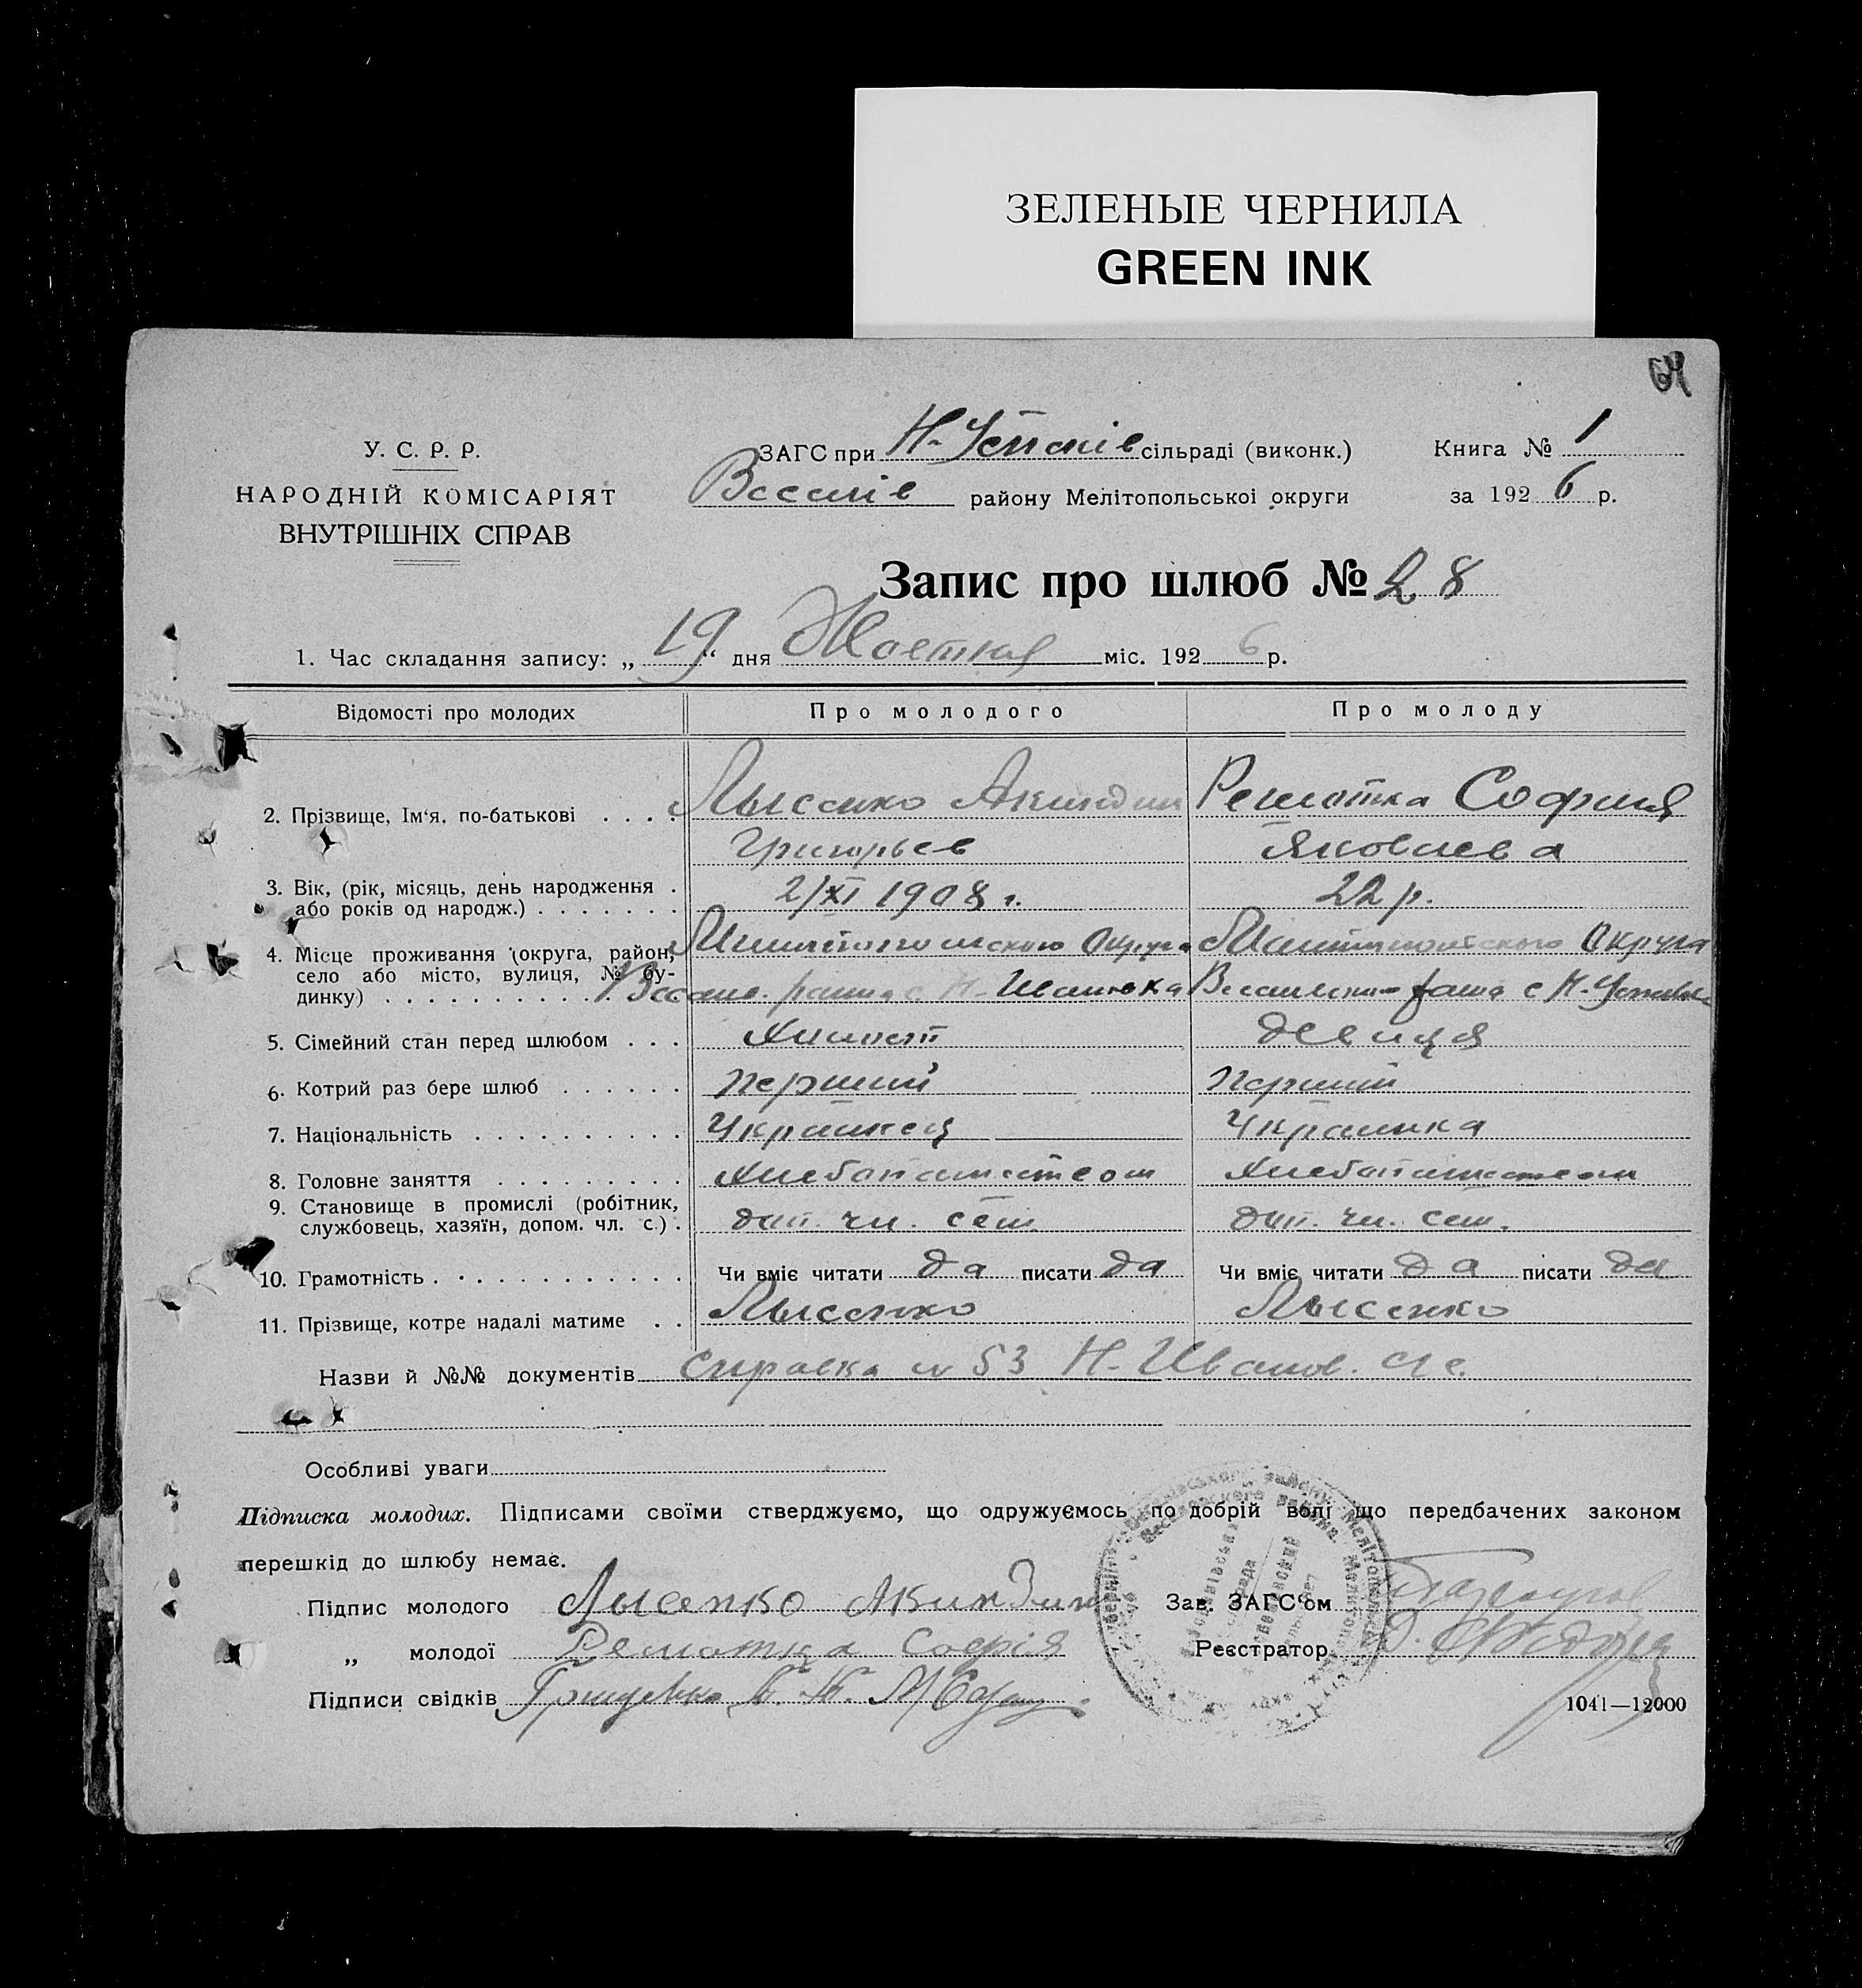 ЗЕЛЕНЫЕ ЧЕРНИЛА
GREEN INK
64
У. С. Р. Р.
НАРОДНІЙ КОМІСАРІЯТ
ВНУТРІШНІХ СПРАВ
ЗАГС при Н-Успенів сільраді (виконк.) Книга № 1
Веселів району Мелітопольської округи за 1926 р.
Запис про шлюб № 28
1. Час складання запису: „19“ дня Жовтня міс. 1926 р.
Відомості про молодих Про молодого Про молоду
2. Прізвище, Ім'я, по-батькові . . . . Лысенко Акиндин Решотка София
Григорьев Яковлева
3. Вік, (рік, місяць, день народження . або років од народж.) . . . . . . . 2/XI 1908 г. 22 р.
4. Місце проживання (округа, район, село або місто, вулиця, № будинку) . . . Округа Округа
Н-Ивановка с Н-
5. Сімейний стан перед шлюбом . . . холост девиця
6. Котрий раз бере шлюб . . . . . . перший перший
7. Національність . . . . . . . . . . Українец Українка
8. Головне заняття . . . . . . . . .
9. Становище в промислі (робітник, службовець, хазяїн, допом. чл. с.) . доп. чл. сем. доп. чл. сем.
10. Грамотність . . . . . . . . . . . Чи вміє читати да писати да Чи вміє читати да писати да
11. Прізвище, котре надалі матиме . . Лысенко Лысенко
Назви й №№ документів Справка № 53 Н-Иванов.
Особливі уваги
Підписка молодих. Підписами своїми стверджуємо, що одружуємось по добрій волі що передбачених законом
перешкід до шлюбу немає.
Підпис молодого Лысенко Акиндин Зав. ЗАГС'ом
„ молодої Решотка Софія Реєстратор
Підписи свідків
1041—12000